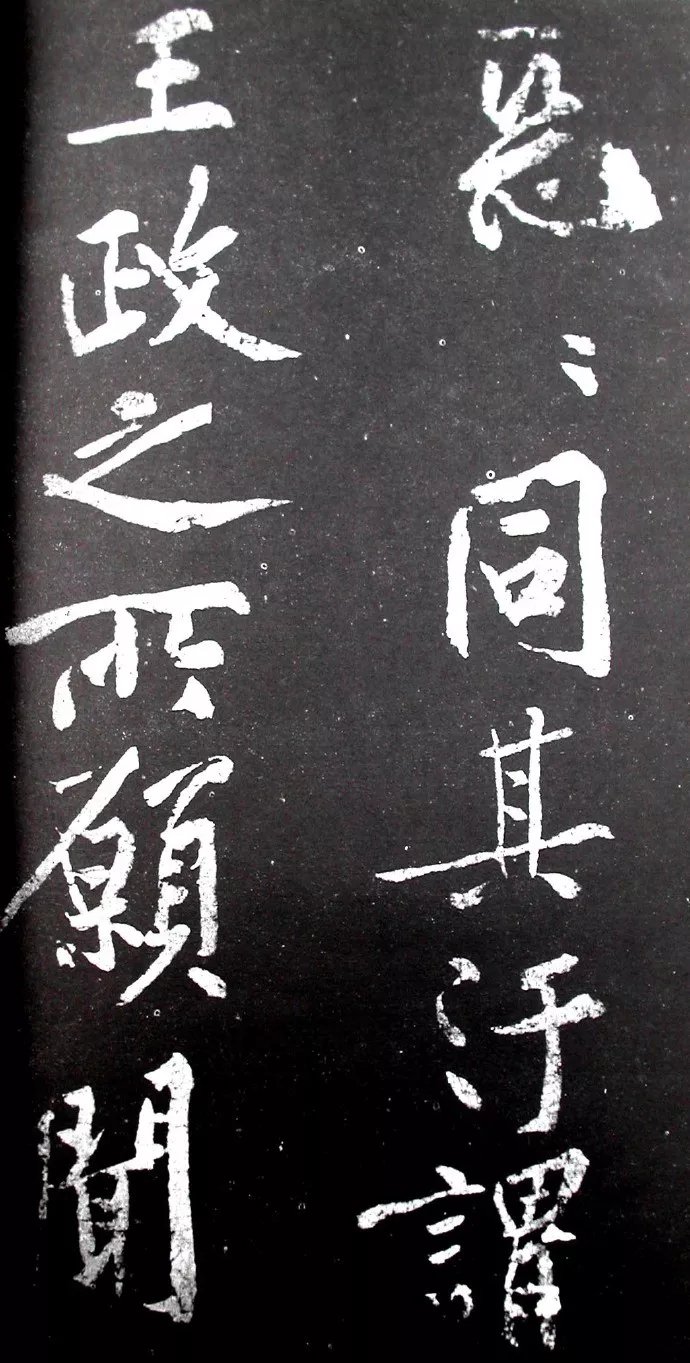 惡〻同其汙謂
王政之所願聞